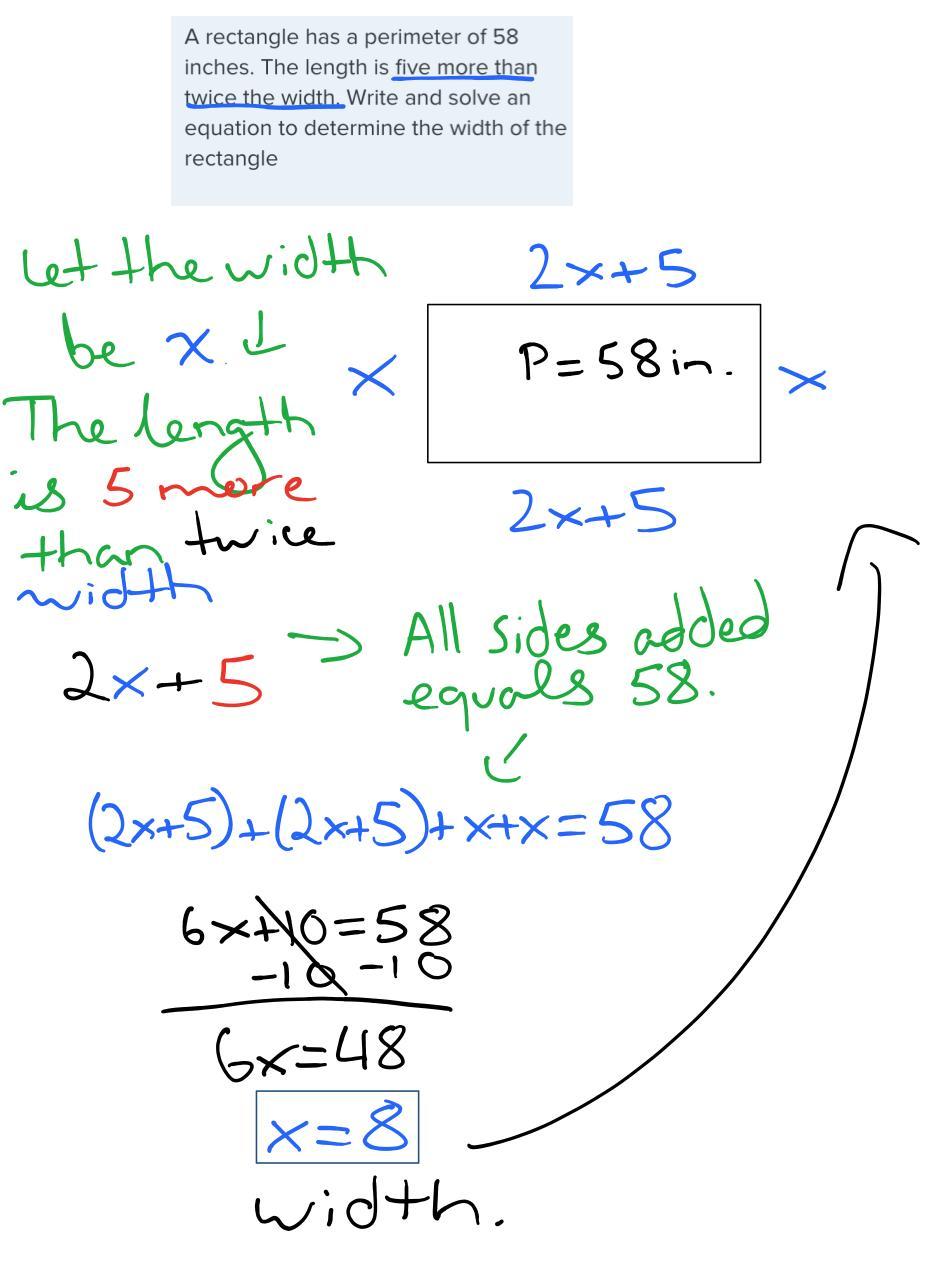 A rectangle has a perimeter of 58
inches. The length is five more than
twice the width. Write and solve an
equation to determine the width of the
rectangle
Let the width
be x. ↓
The length
is 5 more
than twice
width
2x+5
2x+5
x
P=58in.
x
2x+5
→ All sides added
equals 58.
↙
(2x+5)+(2x+5)+x+x=58
6x+10=58
-10 -10
6x=48
x=8
width.